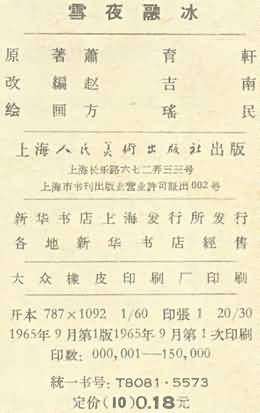 雪夜融冰
原著蕭育軒
改編赵吉南
绘画方瑤民
上海人民美術出版社出版
上海长乐路六七二弄三三号
上海市书刊出版业营业許可証出002号
新华书店上海发行所发行
各地新华书店經售
大众橡皮印刷厂印刷
开本 787×1092 1/60 印張 1 20/30
1965年9月第1版1965年9月第1次印刷
印数: 000,001—150,000
統一书号: T8081·5573
定价(10)0.18元